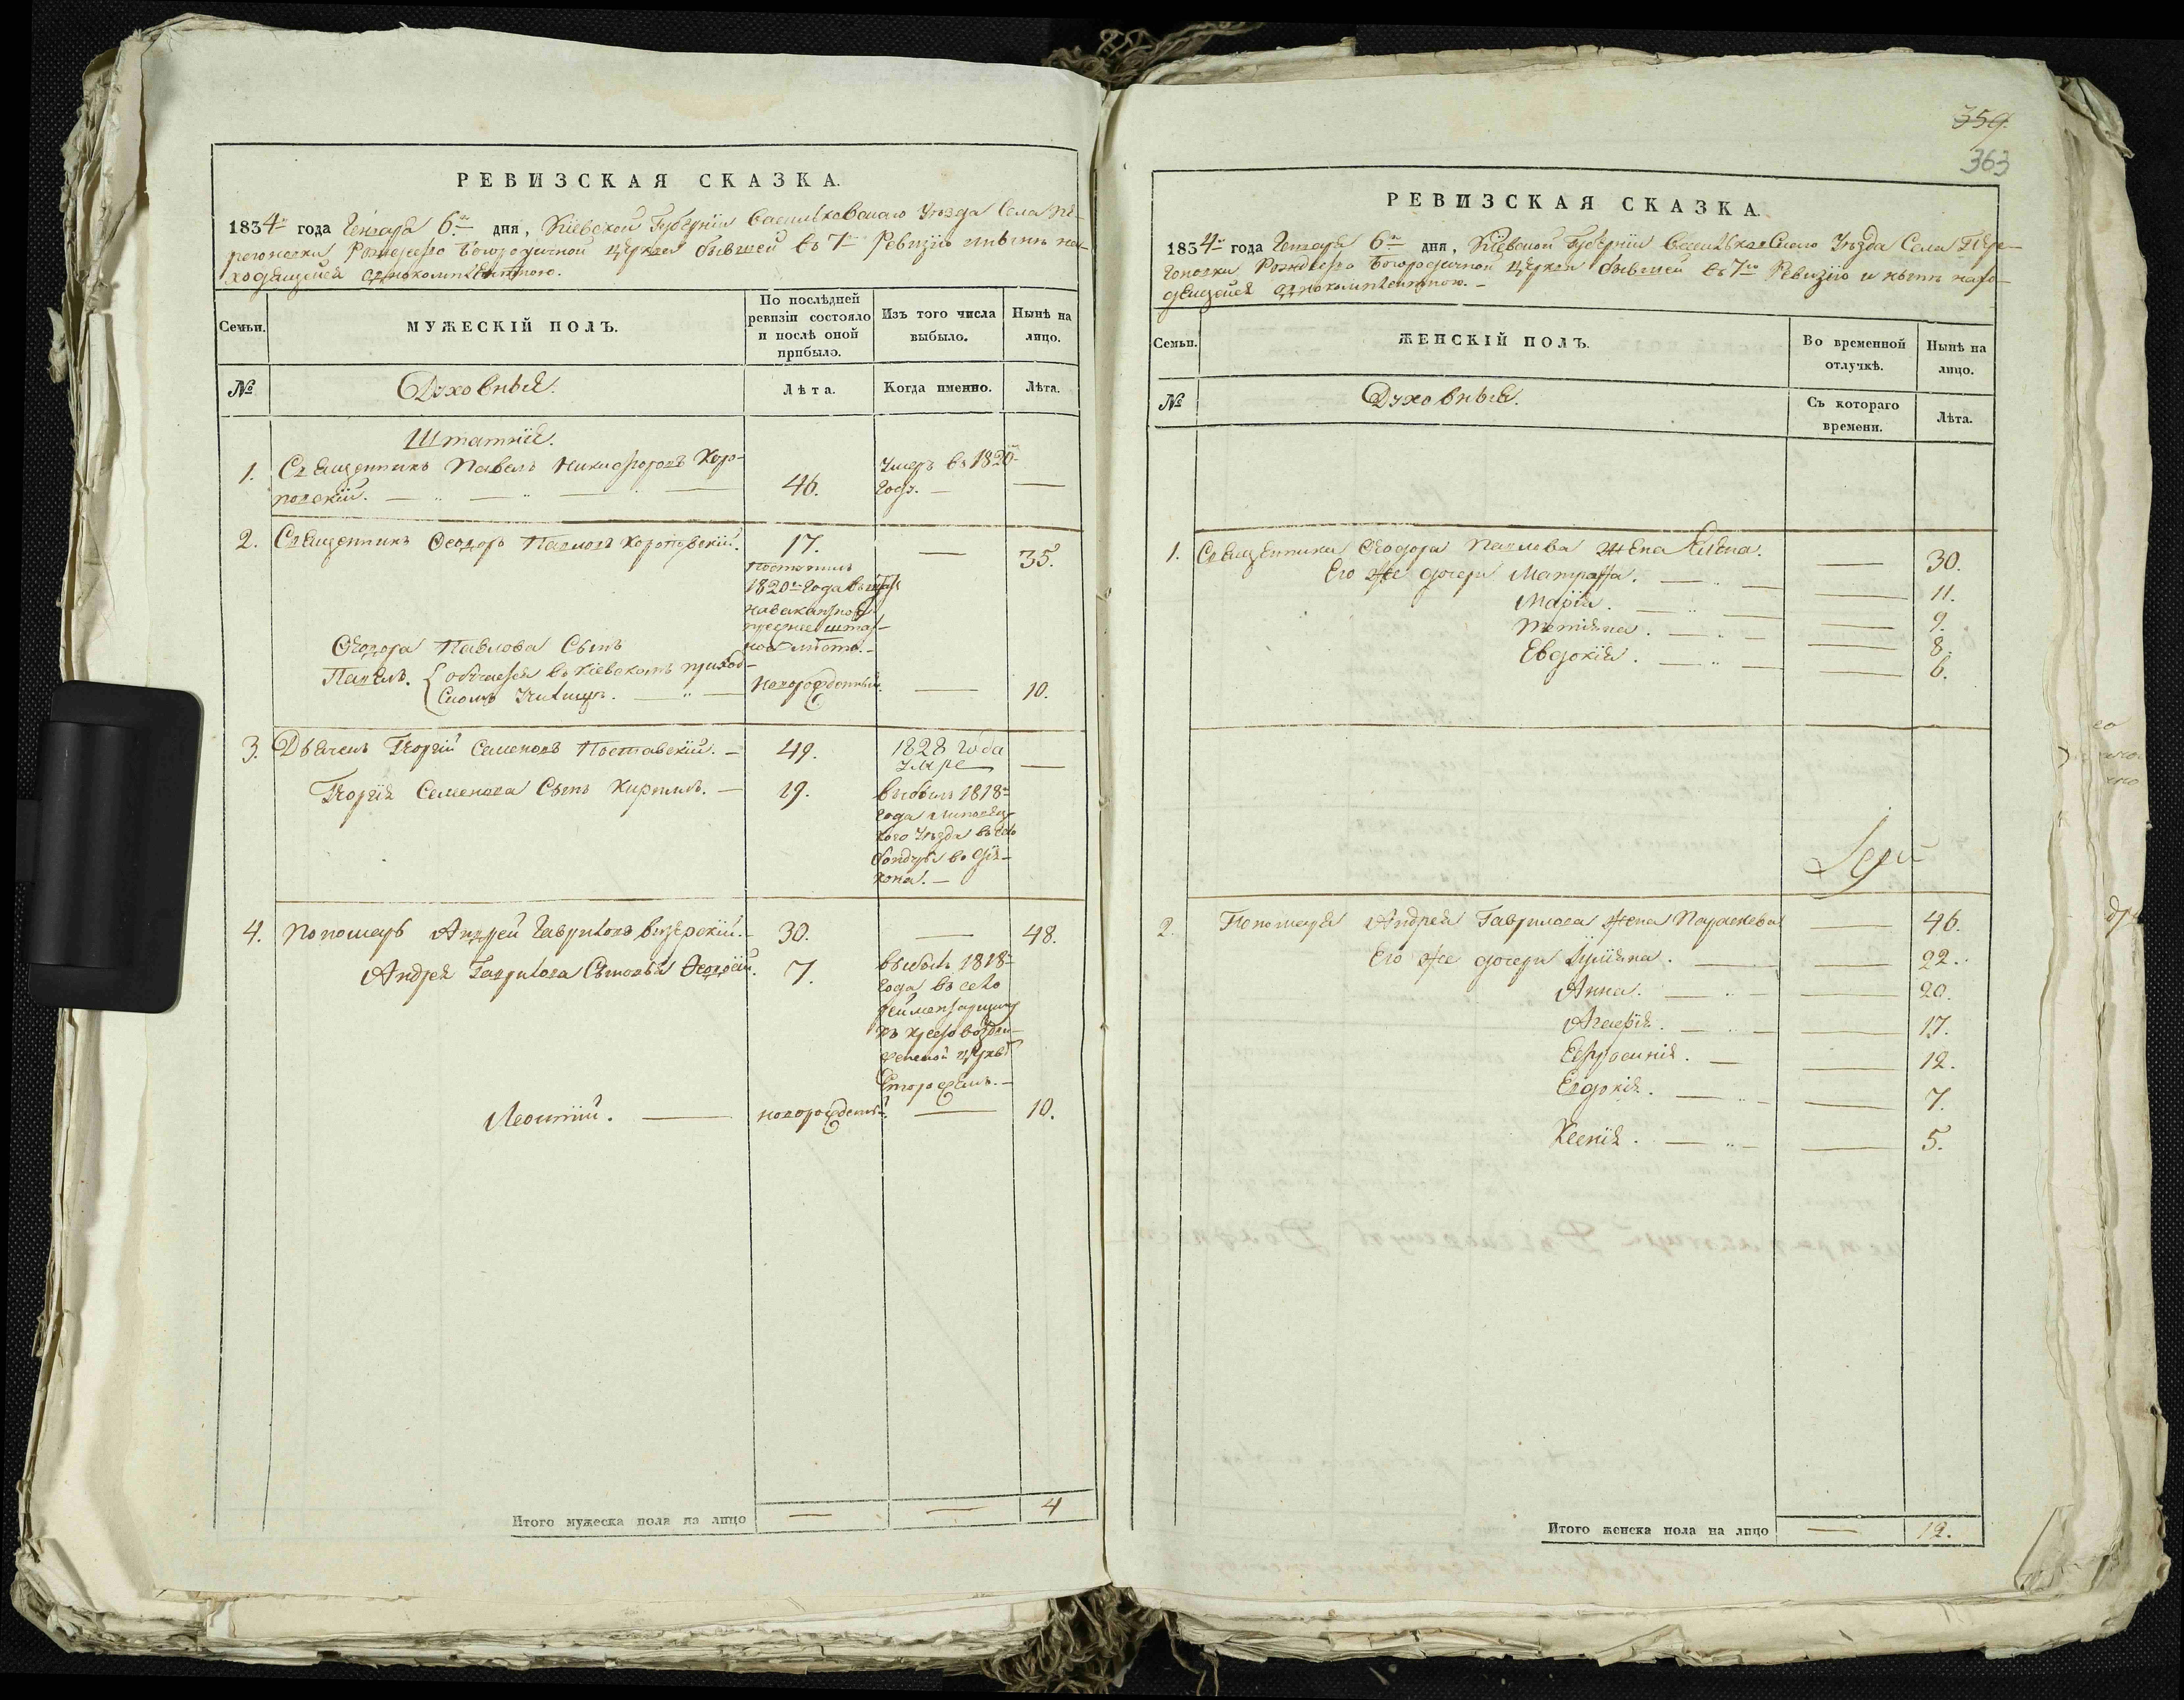 РЕВИЗСКАЯ СКАЗКА.
1834го года Генваря 6го дня, Кіевской Губерніи Васильковскаго Уезда Села Пе-
регоновки Рождество Богородичной Церкви бывшей въ 7ю Ревизію и нынѣ на-
ходящейся однокомплектною.
Семьи.
МУЖЕСКІЙ ПОЛЪ.
По послѣдней ревизіи состояло и послѣ оной прибыло.
Изъ того числа выбыло.
Нынѣ на лицо.
№
Духовныя.
Лѣта.
Когда именно.
Лѣта.
Штатніи.
1. Священникъ Павелъ Никифоровъ Хоро-
повскій. 46. Умеръ въ 1820м
Году.
2. Священникъ Феодоръ Павловъ Хороповскій. 17. 35.
Поступилъ
1820го Года
мѣсто.
Феодора Павлова Сынъ
Павелъ. обучается въ Кіевскомъ приход-
скомъ Училищѣ. Новорожденный. 10.
3. Дьячекъ Георгій Семеновъ Поставскій. 49. 1828 года
умре
Георгія Семенова Сынъ Кириллъ. 19. выбылъ 1818го
Года Липовец-
кого Уезда въ село
во дія-
кона.
4. Пономарь Андрей Гавриловъ Визерскій. 30. 48.
Андрея Гаврилова Сыновья Феодосій. 7. выбылъ 1818го
Года въ село
къ кресто воздви-
женской Церкви
Сторожемъ.
Леонтій. новорожденный. 10.
Итого мужеска пола на лицо 4
359.
363
РЕВИЗСКАЯ СКАЗКА.
1834го года Генваря 6го дня, Кіевской Губерніи Васильковского Уезда Села Пере-
гоновки Рождество Богородичной Церкви бывшей въ 7ю Ревизію и нынѣ нахо-
дящейся однокомплектною.
Семьи.
ЖЕНСКІЙ ПОЛЪ.
Во временной отлучкѣ.
Нынѣ на лицо.
№
Духовныя.
Съ котораго времени.
Лѣта.
1. Священника Феодора Павлова жена Елена. 30.
Его же дочери Матрона. 11.
Марія. 9.
Татіяна. 8.
Евдокія. 6.
2. Пономаря Андрея Гаврилова жена Параскева 46.
Его же дочери Іуліяна. 22.
Анна. 20.
Агафія. 17.
Ефросинія. 12.
Евдокія. 7.
Ксенія. 5.
Итого женска пола на лицо 12.